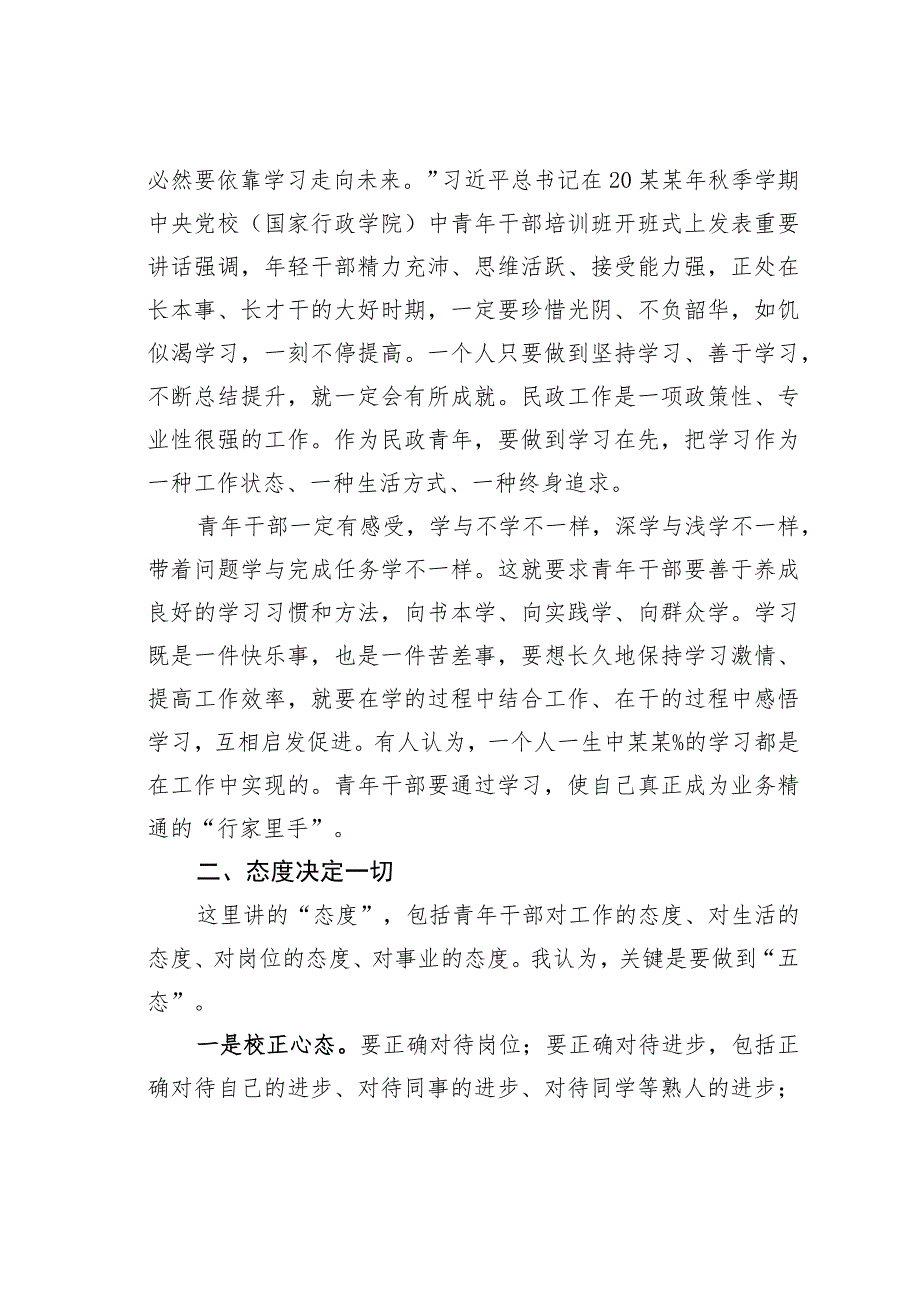 必然要依靠学习走向未来。”习近平总书记在20某某年秋季学期
中央党校（国家行政学院）中青年干部培训班开班式上发表重要
讲话强调，年轻干部精力充沛、思维活跃、接受能力强，正处在
长本事、长才干的大好时期，一定要珍惜光阴、不负韶华，如饥
似渴学习，一刻不停提高。一个人只要做到坚持学习、善于学习，
不断总结提升，就一定会有所成就。民政工作是一项政策性、专
业性很强的工作。作为民政青年，要做到学习在先，把学习作为
一种工作状态、一种生活方式、一种终身追求。
青年干部一定有感受，学与不学不一样，深学与浅学不一样，
带着问题学与完成任务学不一样。这就要求青年干部要善于养成
良好的学习习惯和方法，向书本学、向实践学、向群众学。学习
既是一件快乐事，也是一件苦差事，要想长久地保持学习激情、
提高工作效率，就要在学的过程中结合工作、在干的过程中感悟
学习，互相启发促进。有人认为，一个人一生中某某%的学习都是
在工作中实现的。青年干部要通过学习，使自己真正成为业务精
通的“行家里手”。
二、态度决定一切
这里讲的“态度”，包括青年干部对工作的态度、对生活的
态度、对岗位的态度、对事业的态度。我认为，关键是要做到“五
态”。
一是校正心态。要正确对待岗位；要正确对待进步，包括正
确对待自己的进步、对待同事的进步、对待同学等熟人的进步；